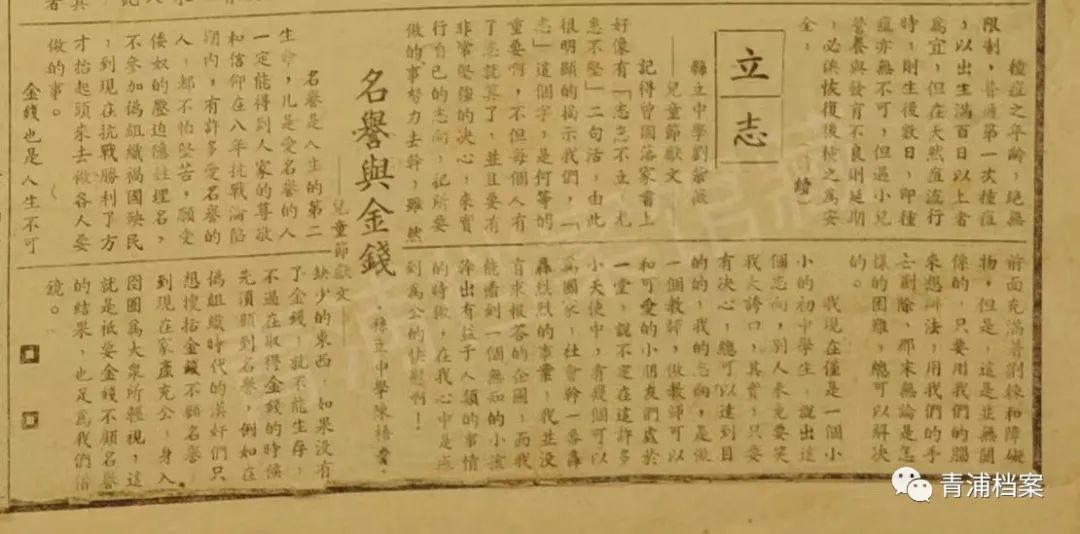 種痘之年齡，絕無
限制，普通第一次種痘
，以出生滿百日以上者
為宜，但在天然痘流行
時，則生後數日，即種
痘亦無不可，但遇小兒
營養與發育不良則延期
，必俟恢復後種之為安
全，（續）
立志
縣立中學劉紫薇
——兒童節獻文
記得曾國藩家書上
好像有「志不立，尤
患不堅」二句活，由此
很明顯的揭示我們，「
志」這個字，是何等的
重要啊，不但每個人有
了志就算了，並且要有
非常堅強的決心，來實
行自己的志向，記所要
做的事努力去幹，雖然
前面充滿著荆棘和障礙
物，但是，這是並無關
係的，只要用我們的腦
來想辦法，用我們的手
去剷除，那末無論是怎
樣的困難，總可以解決
的。
我現在僅是一個小
小的初中學生，說出這
個志向，別人未免要笑
我太誇口，其實，只要
有決心，總可以達到目
的的，我的志向，是做
一個教師，做教師可以
和可愛的小朋友們處於
一堂，說不定在這許多
小天使中，有幾個可以
為國家，社會幹一番轟
轟烈烈的事業，我並沒
有求報答的企圖，而我
能看到一個無知的小孩
出有益于人類的事情
的時候，在我心中是
到為公的快慰啊！
名譽與金錢
——兒童節獻文——
縣立中學陳梧
名譽是人生的第二
生命，凡是愛名譽的人
一定能得到人家的尊敬
和信仰在八年抗戰淪陷
期內，有許多受名譽的
人，都不怕堅苦，願受
倭奴的壓迫隱姓埋名，
不參加偽組織禍國殃民
，到現在抗戰勝利了方
才抬起頭來去做各人要
做的事。
金錢也是人生不可
缺少的東西，如果沒有
了金錢，就不能生存，
不過在取得金錢的時候
先須顧到名譽，例如在
偽組織時代的漢奸們只
想搜括金錢不顧名譽
到現在家產充公，身入
囹圄為大衆所輕視，這
就是祇要金錢不顧名譽
的結果，也足為我們借
鏡。
青浦档案